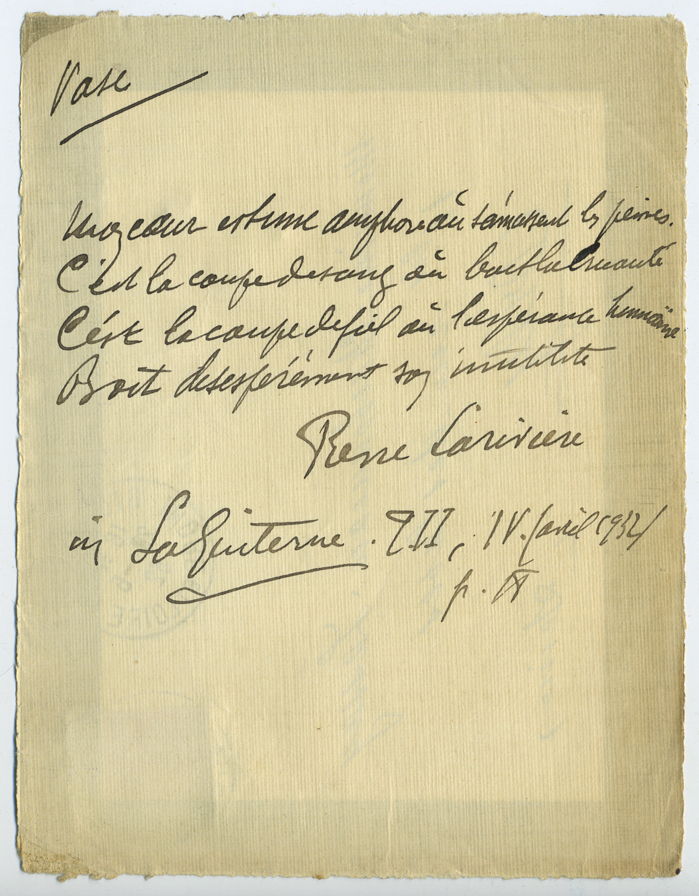 Vase
Mon cœur est une amphore où s'amassent les peines.
C'est la coupe de sang où boit la cruauté
C'est la coupe de fiel où l'espérance humaine
Boit desespérément son inutilité
Pierre Larivière
in La Guiterne. TII, IV. (avril 1932)
p. IX